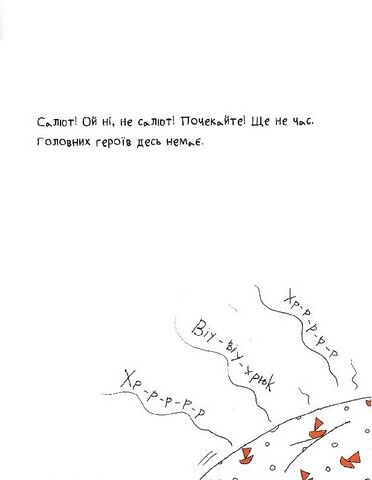 Салют! Ой ні, не салют! Почекайте! Ще не час.
Головних героїв десь немає.
Хр-р-р-р-р
Віу-віу-хрюк
Хр-р-р-р-р